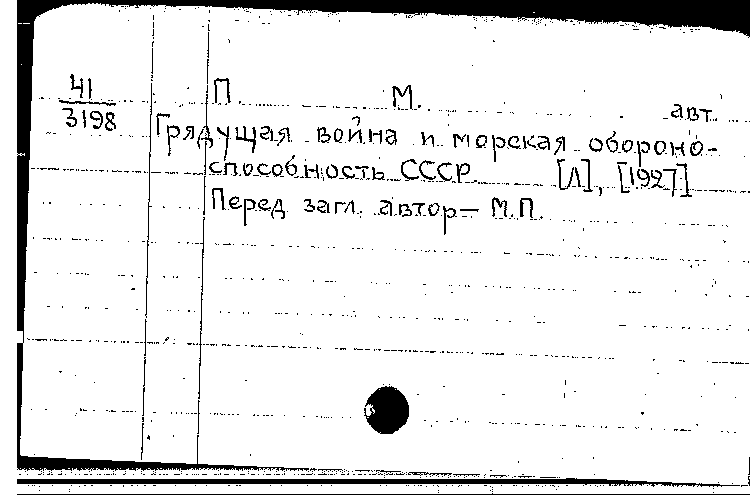 41
3198
П. М. авт.
Грядущая война и морская обороно-
способность СССР. [Л], [1927]
Перед загл. автор — М.П.